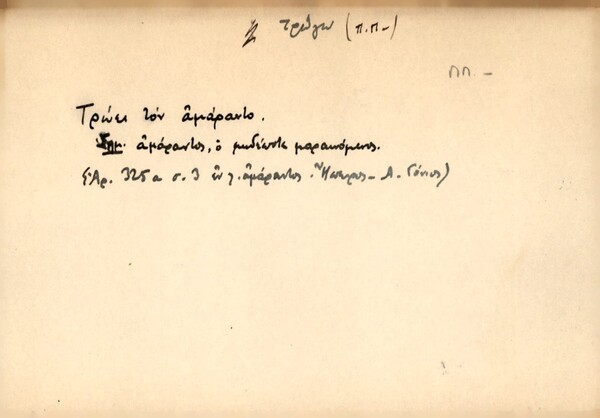 τρώγω (Π.Π-)
ΠΠ. -
Τρώει τὸν ἀμάραντο.
Σημ. ἀμάραντος, ὁ μηδέποτε μαραινόμενος.
(Ἀρ. 325 α σ. 3 ἐν λ. ἀμάραντος. Ἤπειρος - Α. Γόνιος)